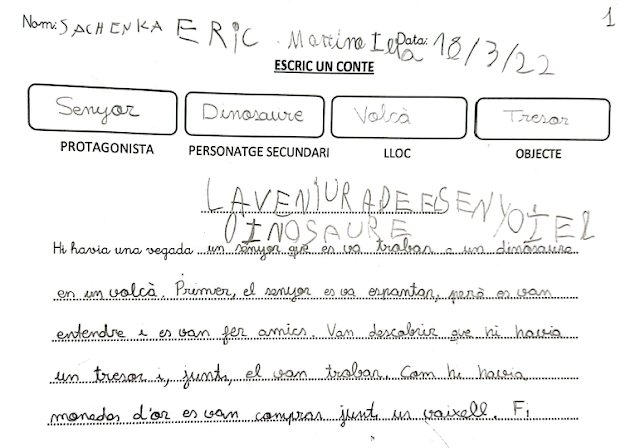 1
Nom: SACHENKA ERIC. Martina Data: 18/3/22
ESCRIC UN CONTE
Senyor Dinosaure Volcà Tresor
PROTAGONISTA PERSONATGE SECUNDARI LLOC OBJECTE
LAVENTURA DE EL SENYO I EL
DINOSAURE
Hi havia una vegada un senyor que es va trobar a un dinosaure
en un volcà. Primer, el senyor es va espantar, però es van
entendre i es van fer amics. Van descobrir que hi havia
un tresor i, junts, el van trobar. Com hi havia
monedes d'or es van comprar junts un vaixell. Fi